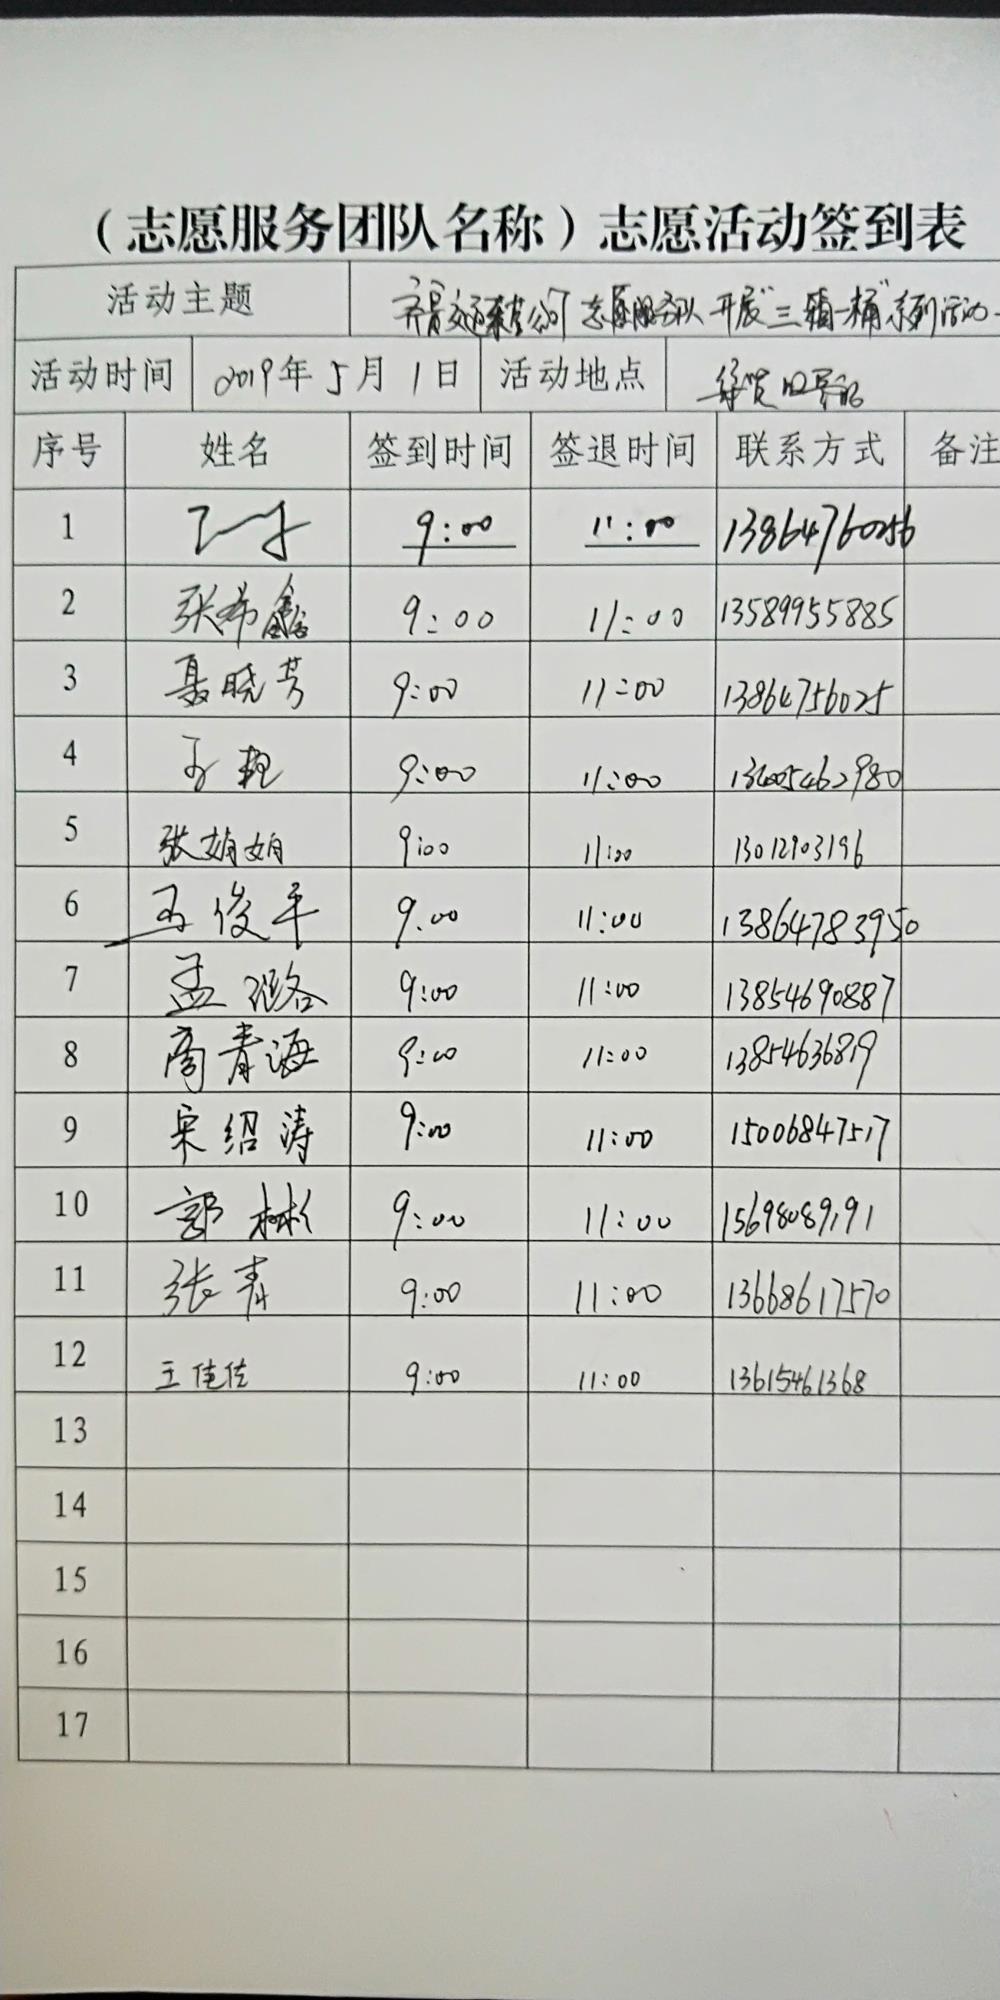 （志愿服务团队名称）志愿活动签到表
活动主题 志愿服务队 开展"三 一桶"系列活动
活动时间 2019年5月1日 活动地点
序号 姓名 签到时间 签退时间 联系方式 备注
1 9:00 11:00 13864760256
2 张希鑫 9:00 11:00 13589955885
3 聂晓芳 9:00 11:00 13864756025
4 9:00 11:00
5 张娟娟 9:00 11:00 13012903196
6 王俊平 9:00 11:00 13864783950
7 孟璐 9:00 11:00 13854690887
8 商青海 9:00 11:00 13854636819
9 宋绍涛 9:00 11:00 15006847517
10 郭彬 9:00 11:00 15698089191
11 张青 9:00 11:00 13668617570
12 王佳佳 9:00 11:00 13615461368
13
14
15
16
17